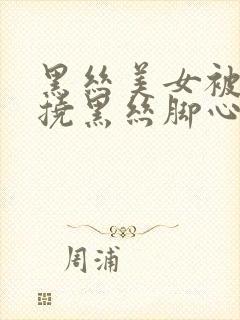 黑丝美女被
挠黑丝脚心
周浦